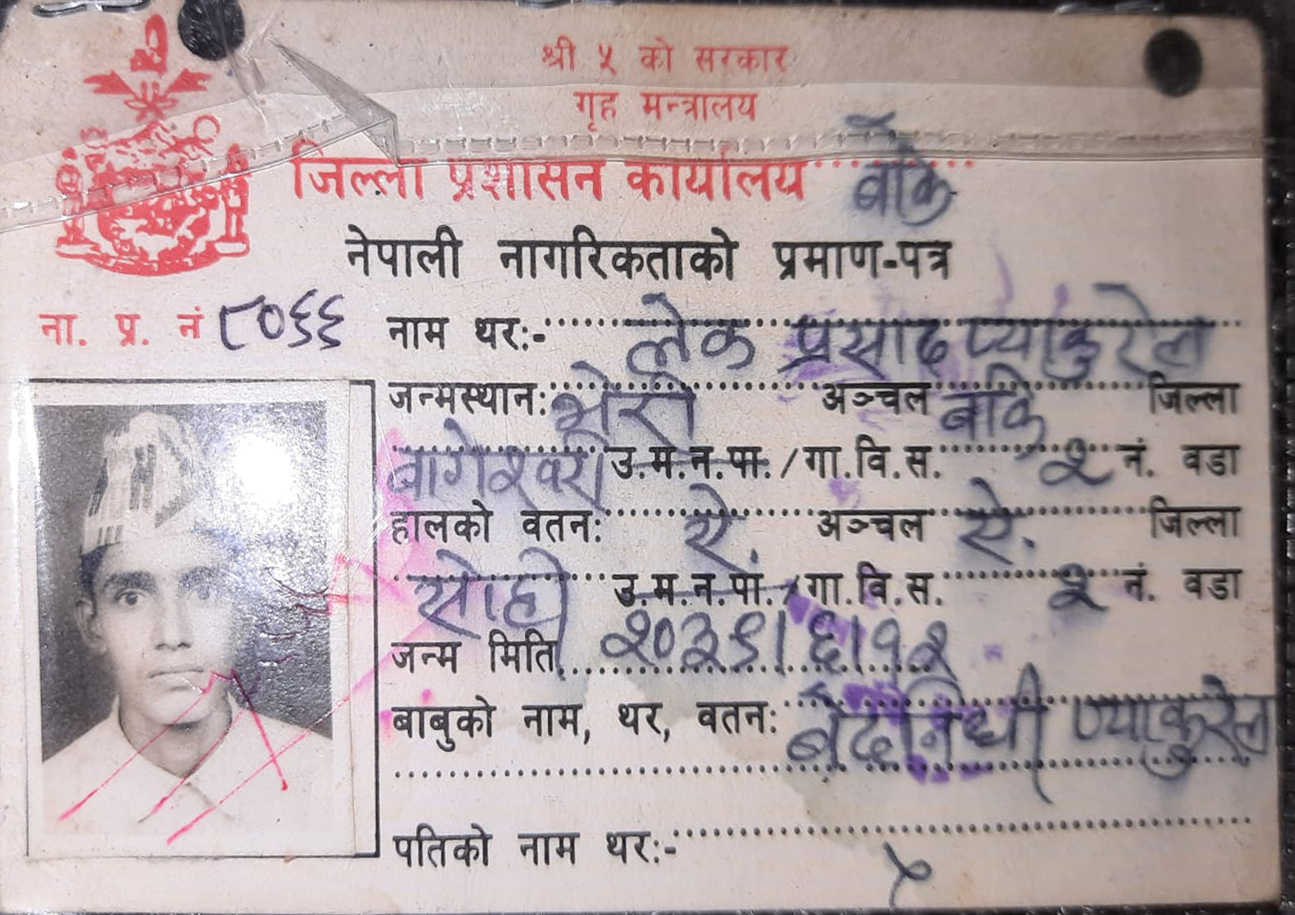 श्री ५ को सरकार
गृह मन्त्रालय
जिल्ला प्रशासन कार्यालय बाँके
नेपाली नागरिकताको प्रमाण-पत्र
ना. प्र. नं ८०६६ नाम थर:- लेक प्रसाद प्याकुरेल
जन्मस्थान: भेरी अञ्चल बाँके जिल्ला
बागेश्वरी उ.म.न.पा./गा.वि.स. २ नं. वडा
हालको वतन: ऐ. अञ्चल ऐ. जिल्ला
सोही उ.म.न.पा./गा.वि.स. २ नं. वडा
जन्म मिति २०३९।६।१२
बाबुको नाम, थर, वतन: बेदनिधी प्याकुरेल
पतिको नाम थर:- ×